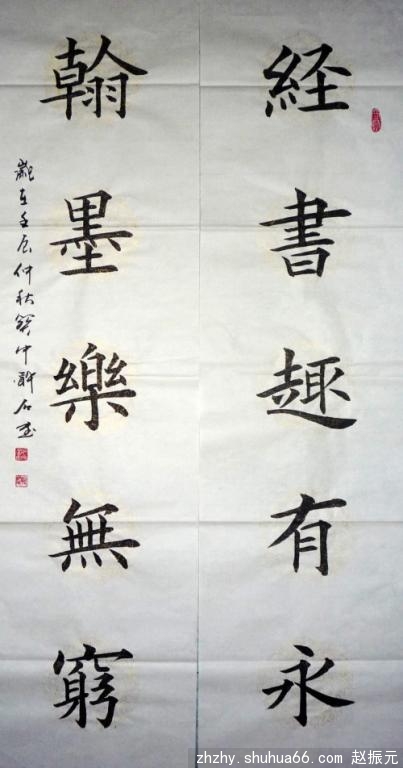 経書趣有永
翰墨樂無窮
歲在壬辰仲秋
zhzhy.shuhua66.com 赵振元